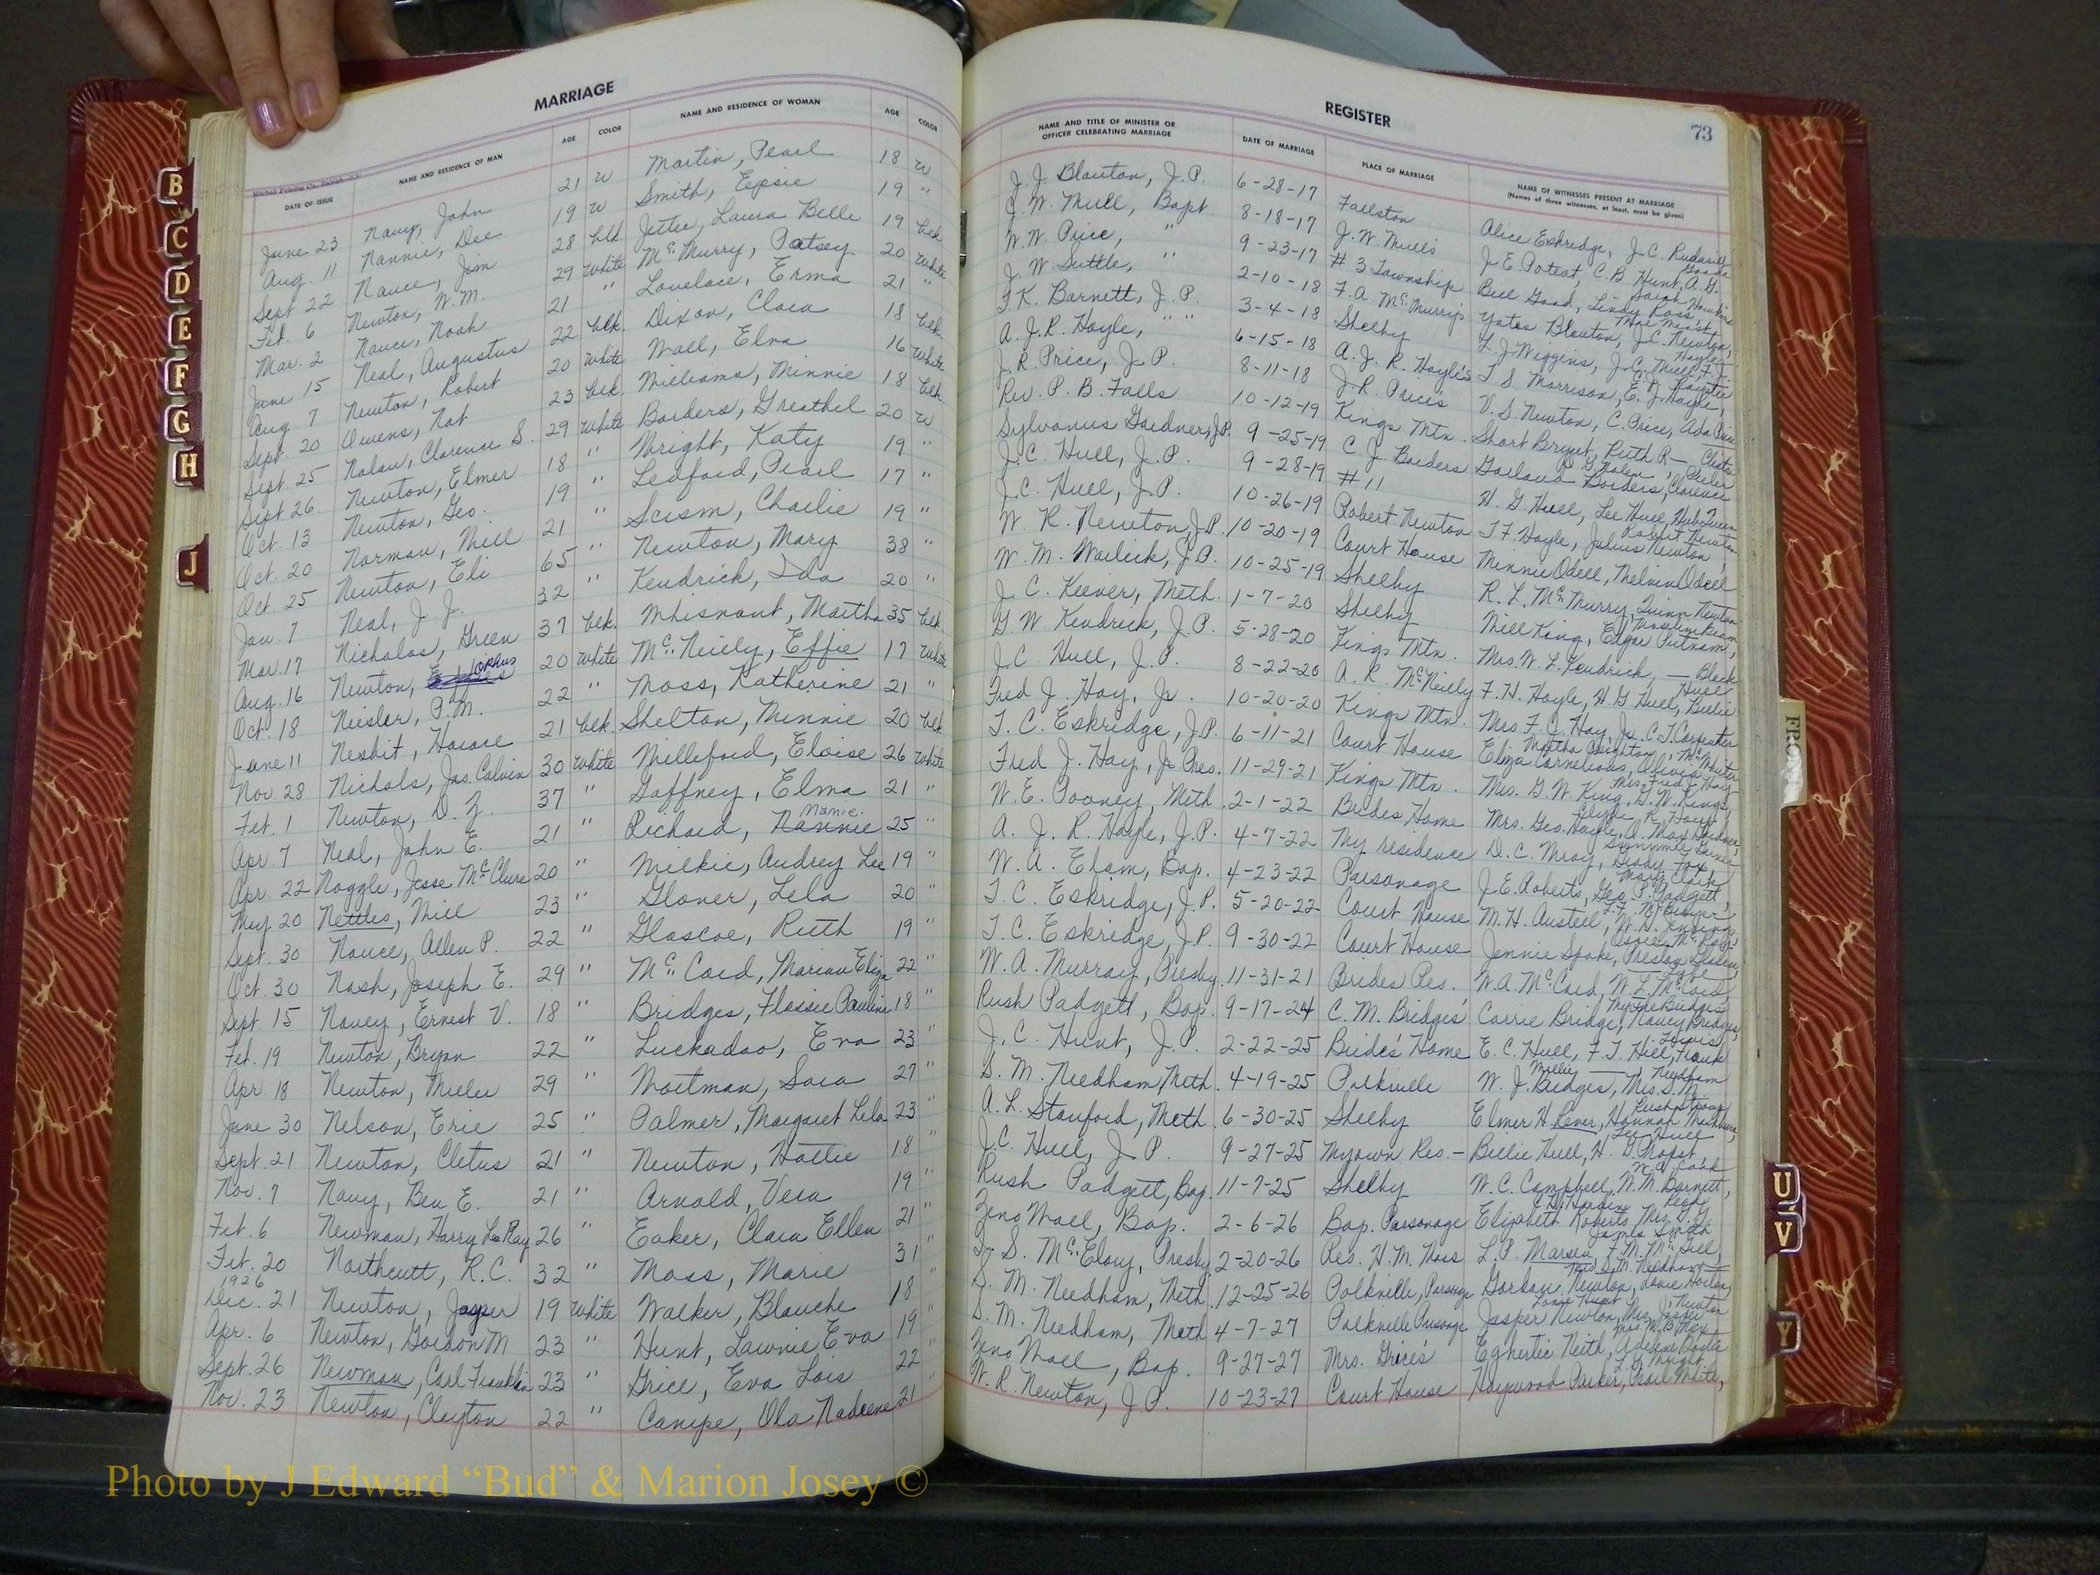 MARRIAGE
DATE OF ISSUE NAME AND RESIDENCE OF MAN AGE COLOR NAME AND RESIDENCE OF WOMAN AGE COLOR
June 23 Navy, John 21 W Martin, Pearl 18 W
Aug. 11 Nannie, Dee 19 W Smith, Epsie 19 "
Sept 22 Nance, Jim 28 blk. Jetter, Laura Belle 19 blk
Feb. 6 Newton, W.M. 29 White McMurry, Patsey 20 White
Mar. 2 Nance, Noah 21 " Lovelace, Erma 21 "
June 15 Neal, Augustus 22 blk. Dixon, Clara 18 blk.
Aug. 7 Newton, Robert 20 White Wall, Elva 16 White
Sept 20 Owens, Nat 23 blk. Williams, Minnie 18 blk
Sept. 25 Nolan, Clarence S. 29 White Borders, Greathel 20 W
Sept 26. Newton, Elmer 18 " Wright, Katy 19 "
Oct. 13 Newton, Geo. 19 " Ledford, Pearl 17 "
Oct. 20 Norman, Will 21 " Scism, Charlie 19 "
Oct 25 Newton, Eli 65 " Newton, Mary 38 "
Jan. 7 Neal, J. J. 32 " Kendrick, Ida 20 "
Mar. 17 Nicholas, Green 37 blk. Whisnant, Martha 35 blk.
Aug. 16 Newton, Orphus 20 White McNeily, Effie 17 White
Oct. 18 Neisler, P.M. 22 " Moss, Katherine 21 "
June 11 Nesbit, Horace 21 blk. Shelton, Minnie 20 blk
Nov 28 Nichols, Jas. Calvin 30 White Milleford, Eloise 26 White
Feb. 1 Newton, D. Z. 37 " Gaffney, Elma 21 "
Apr. 7 Neal, John E. 21 " Richard, Nannie Mamie 25 "
Apr. 22 Noggle, Jesse McClure 20 " Wilkie, Audrey Lee 19 "
May 20 Nettles, Will 23 " Glover, Lela 20 "
Sept. 30 Nance, Allen P. 22 " Glascoe, Ruth 19 "
Oct. 30 Nash, Joseph E. 29 " McCord, Marian Eliza 22 "
Sept. 15 Navey, Ernest V. 18 " Bridges, Flossie Pauline 18 "
Feb. 19 Newton, Bryan 22 " Luckadoo, Eva 23 "
Apr. 18 Newton, Miller 29 " Wortman, Sara 27 "
June 30 Nelson, Eric 25 " Palmer, Margaret Lela 23 "
Sept. 21 Newton, Cletus 21 " Newton, Hattie 18 "
Nov. 7 Navy, Ben E. 21 " Arnold, Vera 19 "
Feb. 6 Newman, Harry LeRoy 26 " Eaker, Clara Ellen 21 "
Feb. 20 Northcutt, R.C. 32 " Moss, Marie 31 "
1926
Dec. 21 Newton, Jasper 19 White Walker, Blanche 18
Apr. 6 Newton, Gordon M 23 " Hunt, Lawnie Eva 19 "
Sept. 26 Newman, Carl Franklin 23 " Grice, Eva Lois 22
Nov. 23 Newton, Clayton 22 " Canipe, Ola Nadeene 21
REGISTER
73
NAME AND TITLE OF MINISTER OR
OFFICER CELEBRATING MARRIAGE DATE OF MARRIAGE PLACE OF MARRIAGE NAME OF WITNESSES PRESENT AT MARRIAGE
(Names of three witnesses, at least, must be given)
J. J. Blanton, J.P. 6-28-17 Fallston Alice Eskridge, J.C.
J. W. Mull, Bapt. 8-18-17 J. W. Mull's J. E. Poteat, C. B. Hunt, A. G.
W. W. Price, " 9-23-17 #3 Township Bill Good, Lindy Ross
J. W. Suttle, " 2-10-18 F. A. McMurrys Yates Blanton, J.C. Newton,
F. K. Barnett, J. P. 3-4-18 Shelby L. J. Wiggins, J.C. Mull, F. J.
A. J. R. Hoyle, " " 6-15-18 A. J. R. Hoyle's T. S. Morrison, E. J. Hoyle,
J. R. Price, J. P. 8-11-18 J. R. Price's V. S. Newton, C. Price, Ada Price
Rev. P. B. Falls 10-12-19 Kings Mtn. Short Bryant, Ruth R—
Sylvanus Gardner, J.P. 9-25-19 C. J. Borders Garland Borders, Clarence
J. C. Hull, J. P. 9-28-19 #11 H. G. Hull, Lee Hull,
J. C. Hull, J. P. 10-26-19 Robert Newton T. F. Hoyle, Julius Newton,
W. R. Newton, J.P. 10-20-19 Court House Minnie Odell, Thelma Odell
W. M. Warlick, J.P. 10-25-19 Shelby R. L. McMurry, Quinn Newton
J. C. Keever, Meth. 1-7-20 Shelby Will King, Edgar Putnam,
G. W. Kendrick, J.P. 5-28-20 Kings Mtn. Mrs. W. L. Kendrick, — Black
J. C. Hull, J. P. 8-22-20 A. R. McNeily F. H. Hoyle, H. G. Hull, Billie
Fred J. Hay, Jr. 10-20-20 Kings Mtn. Mrs F. J. Hay, Jr., C. T. Carpenter
T. C. Eskridge, J.P. 6-11-21 Court House Eliza Cornelious, Olivia
Fred J. Hay, Jr Pres. 11-29-21 Kings Mtn. Mrs. G. W. King, G. W. King,
W. E. Pooney, Meth. 2-1-22 Brides Home Mrs. Geo. Hoyle, O. Max Gardner,
A. J. R. Hoyle, J.P. 4-7-22 My residence D. C. Wray,
W. A. Elam, Bap. 4-23-22 Parsonage J. E. Roberts, Geo. P. Padgett,
T. C. Eskridge, J.P. 5-20-22 Court House M. H. Austell,
T. C. Eskridge, J.P. 9-30-22 Court House Jennie Spake, Presley Glascoe,
W. A. Murray, Presby. 11-31-21 Brides Res. W. A. McCord, W. L. McCord,
Rush Padgett, Bap. 9-17-24 C. M. Bridges' Carrie Bridge, Nancy Bridges,
J. C. Hunt, J. P. 2-22-25 Bride's Home E. C. Hull, F. T. Hill, Frank
D. M. Needham, Meth. 4-19-25 Polkville W. J. Bridges, Mrs. D. M.
A. L. Stanford, Meth. 6-30-25 Shelby Elmer H Rever, Hannah
J. C. Hull, J. P. 9-27-25 My own Res. — Billie Hull, H. G. Propst,
Rush Padgett, Bap. 11-7-25 Shelby W. C. Campbell, W. M. Barnett,
Zeno Wall, Bap. 2-6-26 Bap. Parsonage Elizabeth Roberts, Mrs. D. G.
McElroy, Presby. 2-20-26 Res. H. M. Moss L. P.
D. M. Needham, Meth. 12-25-26 Polkville, Parsonage Gordon Newton,
D. M. Needham, Meth 4-7-27 Polkville Parsonage Jasper Newton, Mrs. Jasper
Zeno Wall, Bap. 9-27-27 Mrs. Grice's
W. R. Newton, J. P. 10-23-27 Court House Haywood Parker, Pearl White,
B
C
D
E
F
G
H
J
U
V
Y
Photo by J Edward “Bud” & Marion Josey ©